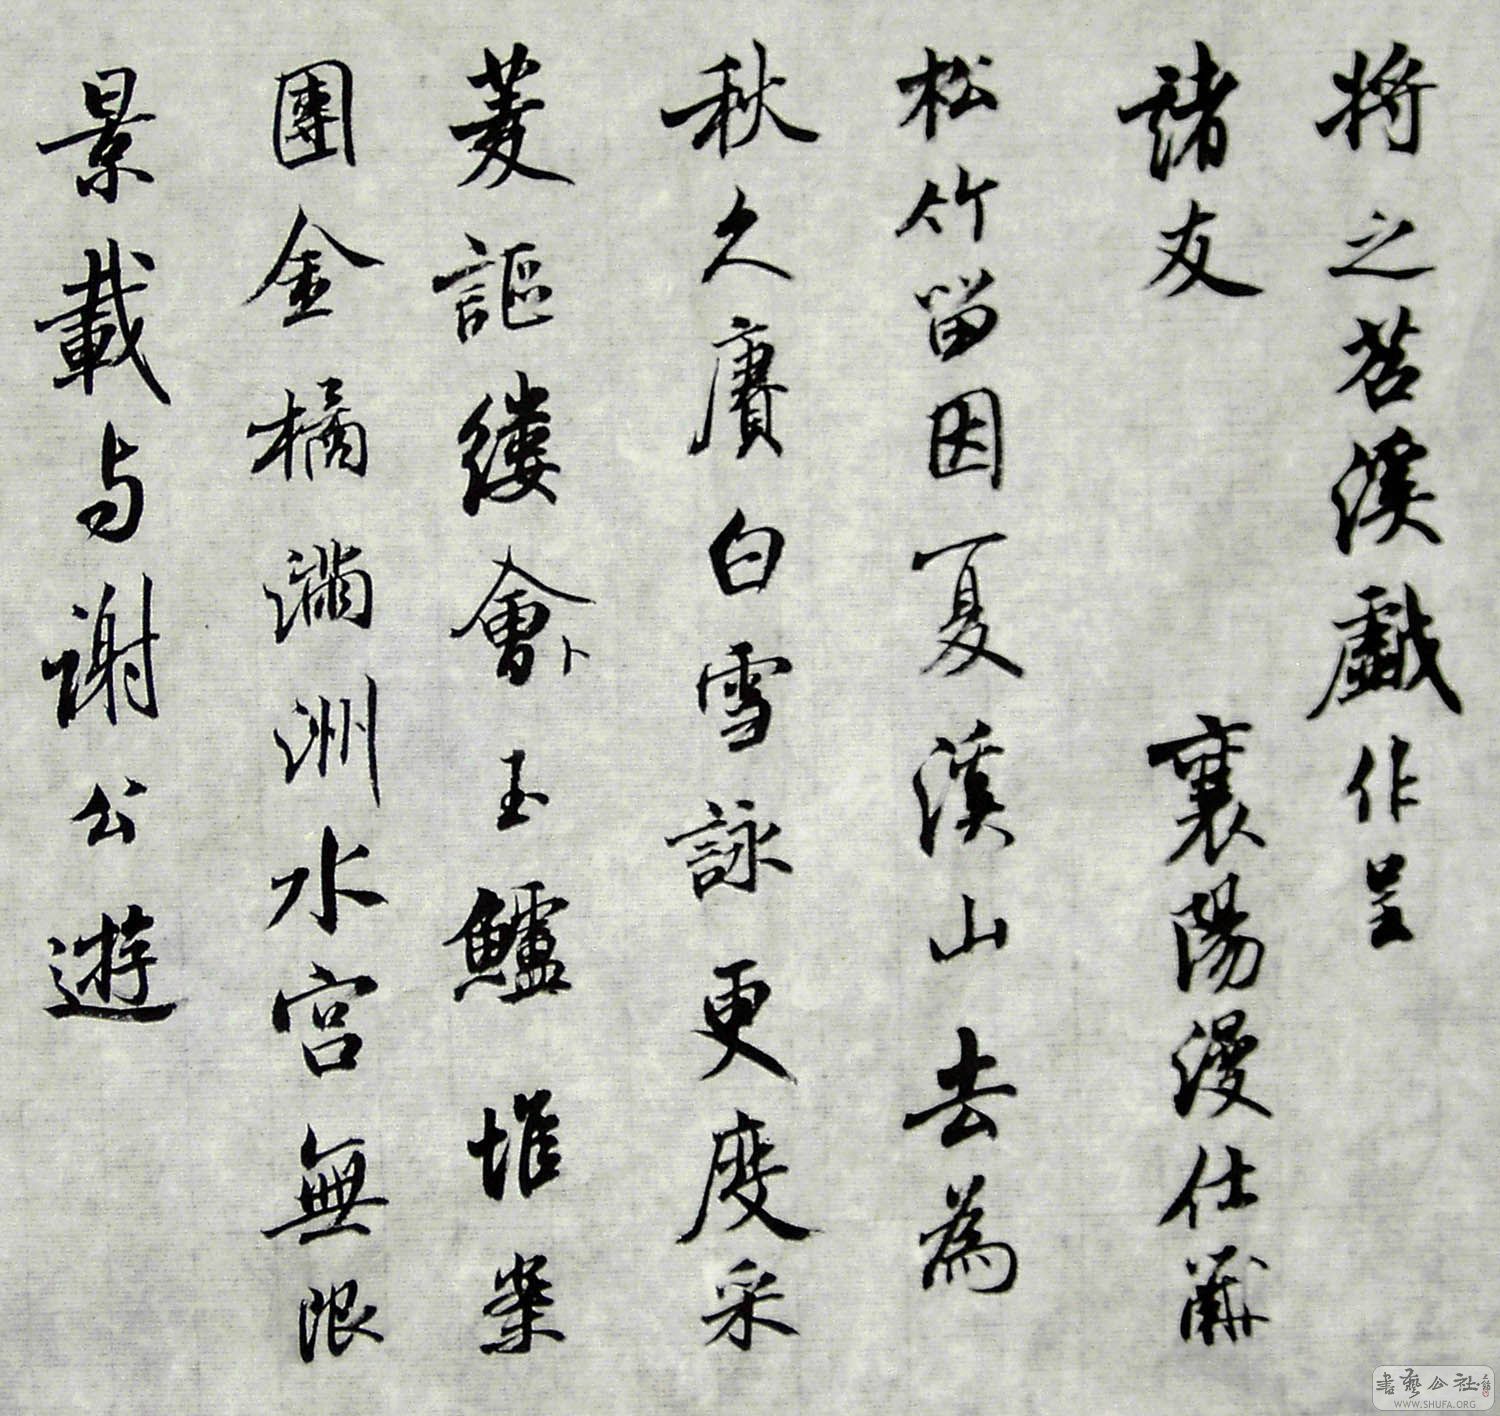 將之苕溪戲作呈
諸友
襄陽漫仕黻
松竹留因夏溪山去為
秋久賡白雪詠更度采
菱謳縷會卜玉鱸堆案
團金橘滿洲水宮無限
景載与謝公遊
書藝公社
WWW.SHUFA.ORG